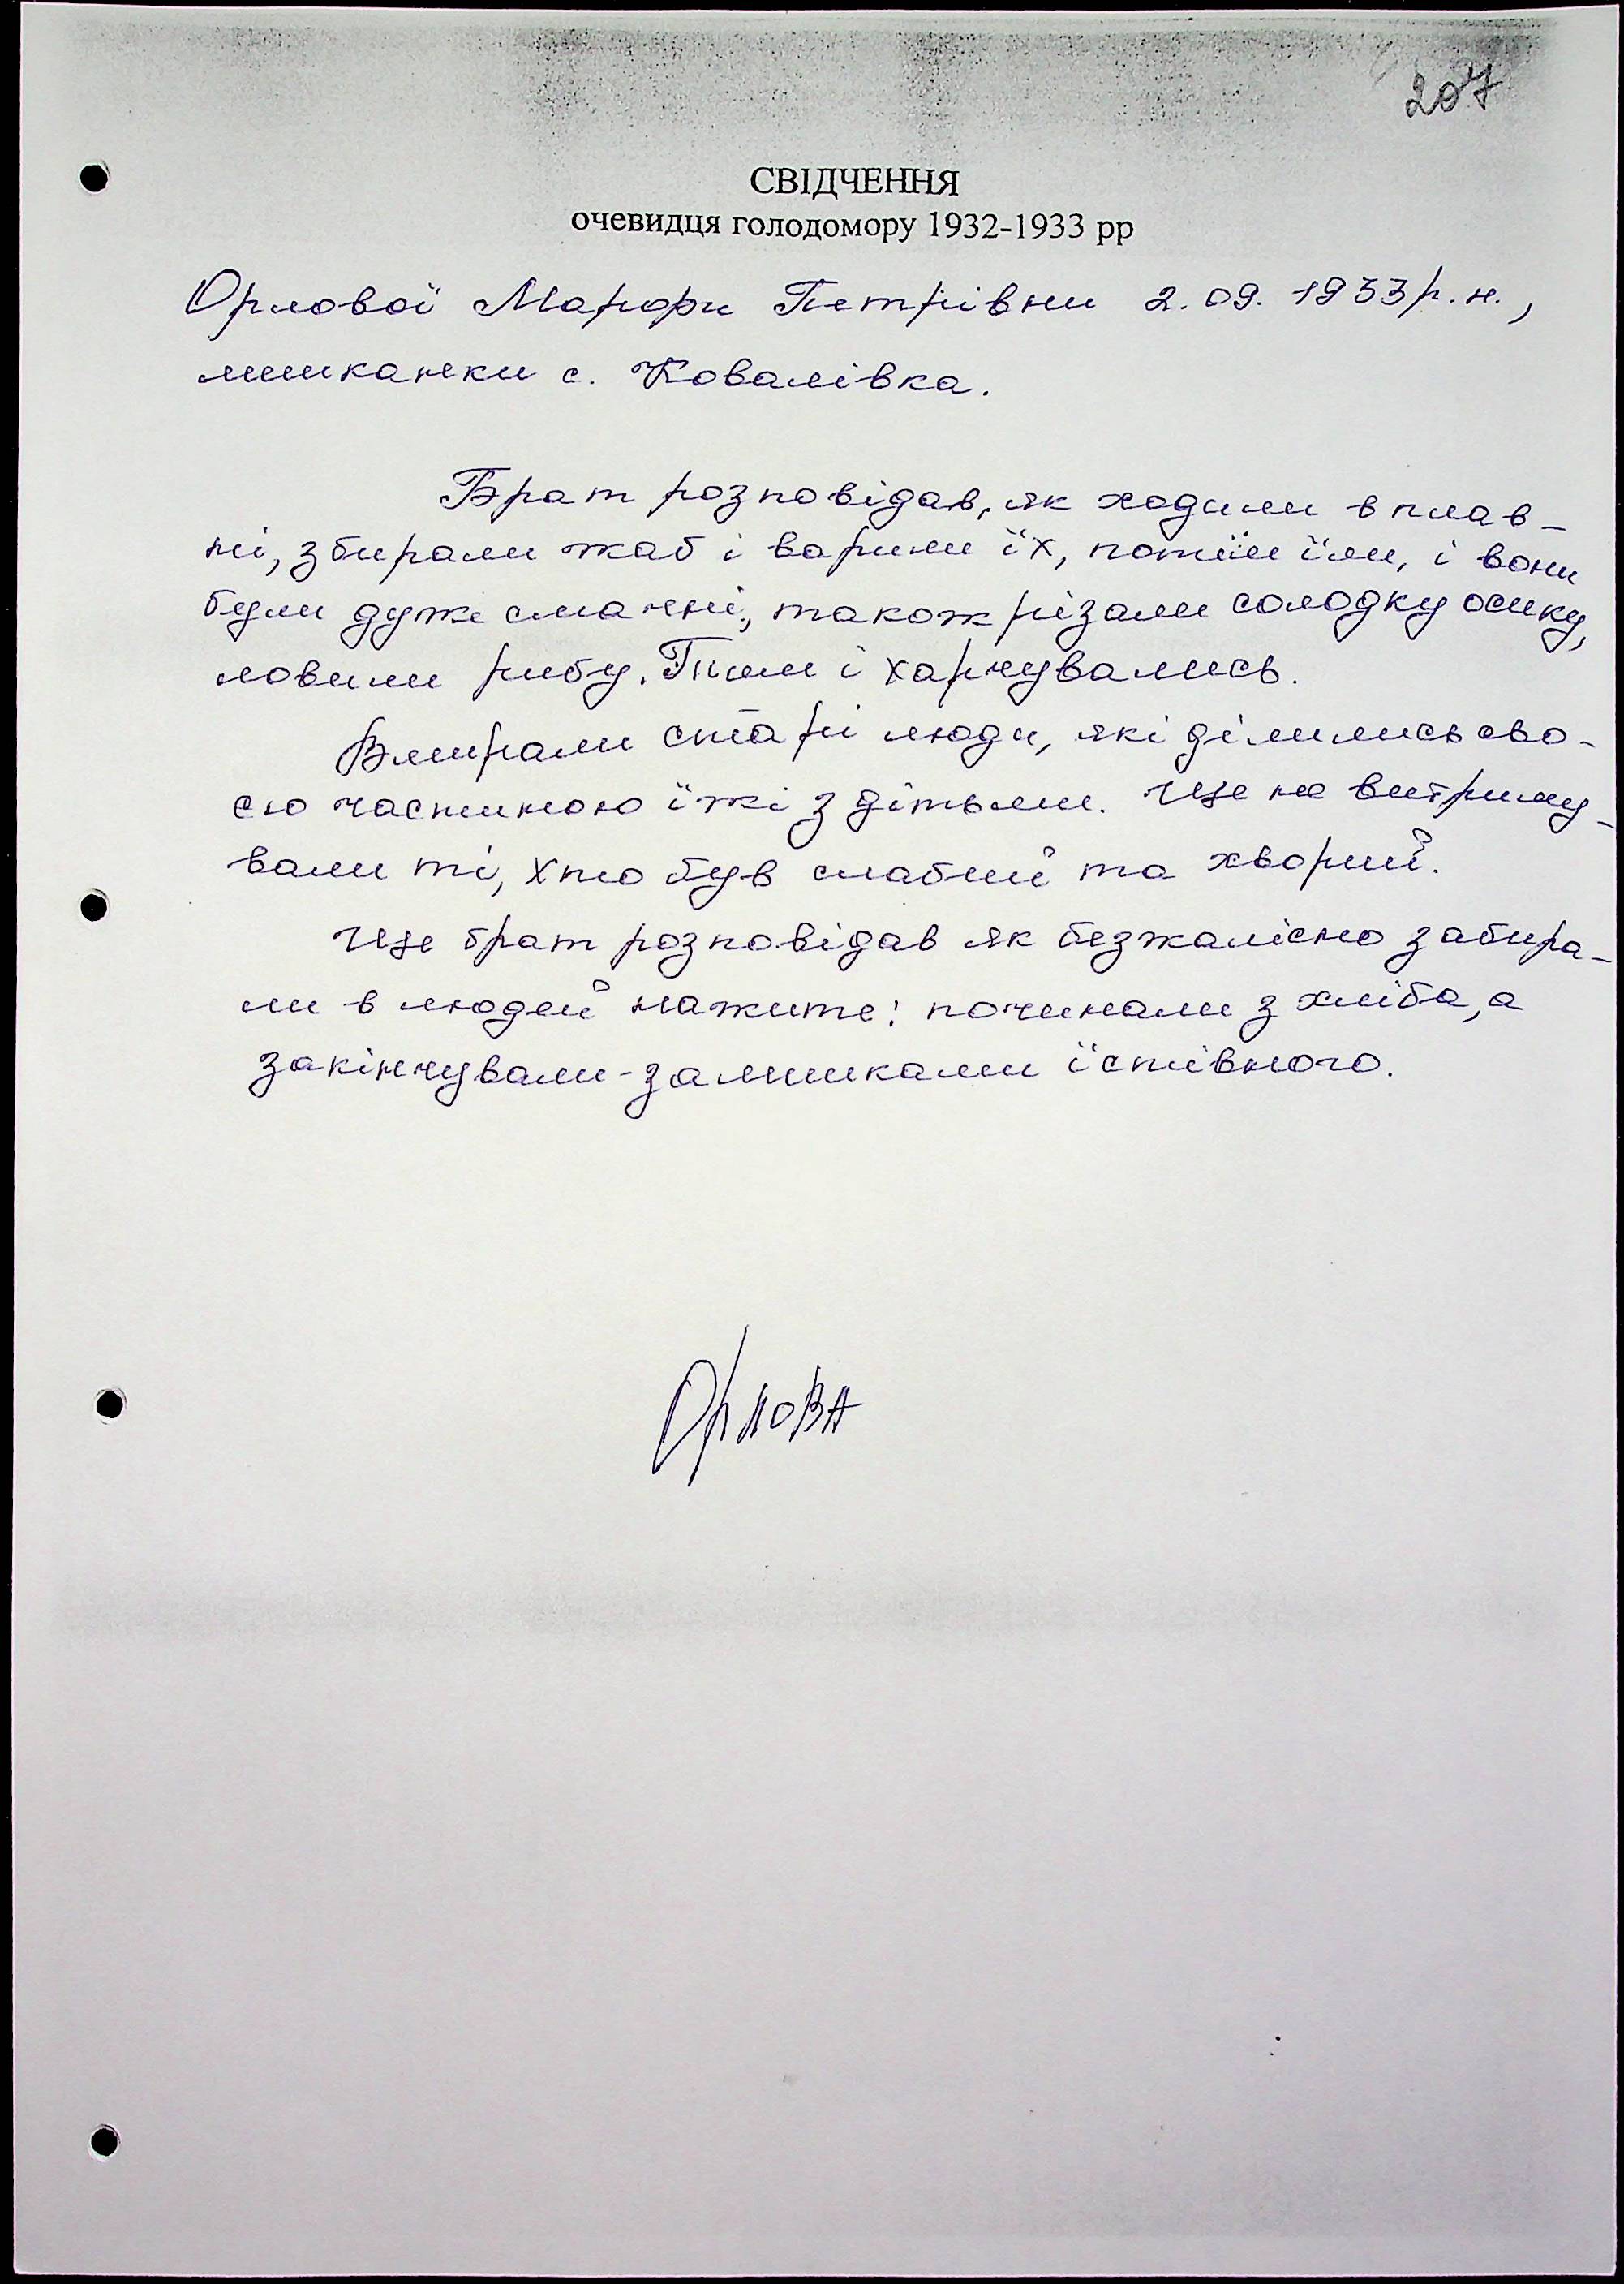 207
СВІДЧЕННЯ
очевидця голодомору 1932-1933 рр
Орлової Марфи Петрівни 2.09. 1933 р.н.,
мешканки с. Ковалівка.
Брат розповідав, як ходили в плав-
ні, збирали жаб і варили їх, потім їли, і вони
були дуже смачні, також різали солодку осику,
ловили рибу. Тим і харчувались.
Вмирали старі люди, які ділились сво-
єю частиною їжі з дітьми. Ще не витриму-
вали ті, хто був слабий та хворий.
Ще брат розповідав як безжалісно забира-
ли в людей нажите: починали з хліба, а
закінчували - залишками їстівного.
Орлова